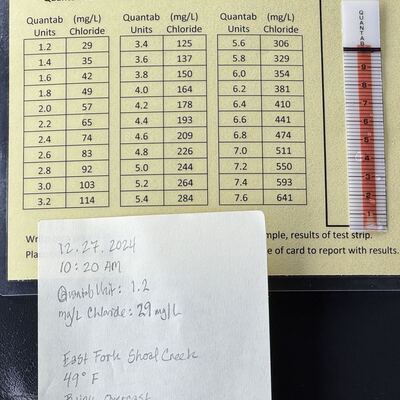 Quantab (mg/L) Quantab (mg/L) Quantab (mg/L)
Units Chloride Units Chloride Units Chloride
1.2 29 3.4 125 5.6 306
1.4 35 3.6 137 5.8 329
1.6 42 3.8 150 6.0 354
1.8 49 4.0 164 6.2 381
2.0 57 4.2 178 6.4 410
2.2 65 4.4 193 6.6 441
2.4 74 4.6 209 6.8 474
2.6 83 4.8 226 7.0 511
2.8 92 5.0 244 7.2 550
3.0 103 5.2 264 7.4 593
3.2 114 5.4 284 7.6 641
QUANTAB
9
8
7
6
5
4
3
2
1
mple, results of test strip.
e of card to report with results.
12.27.2024
10:20 AM
Quantab Unit: 1.2
mg/L Chloride: 29 mg/L
East Fork Shoal Creek
49° F
Overcast